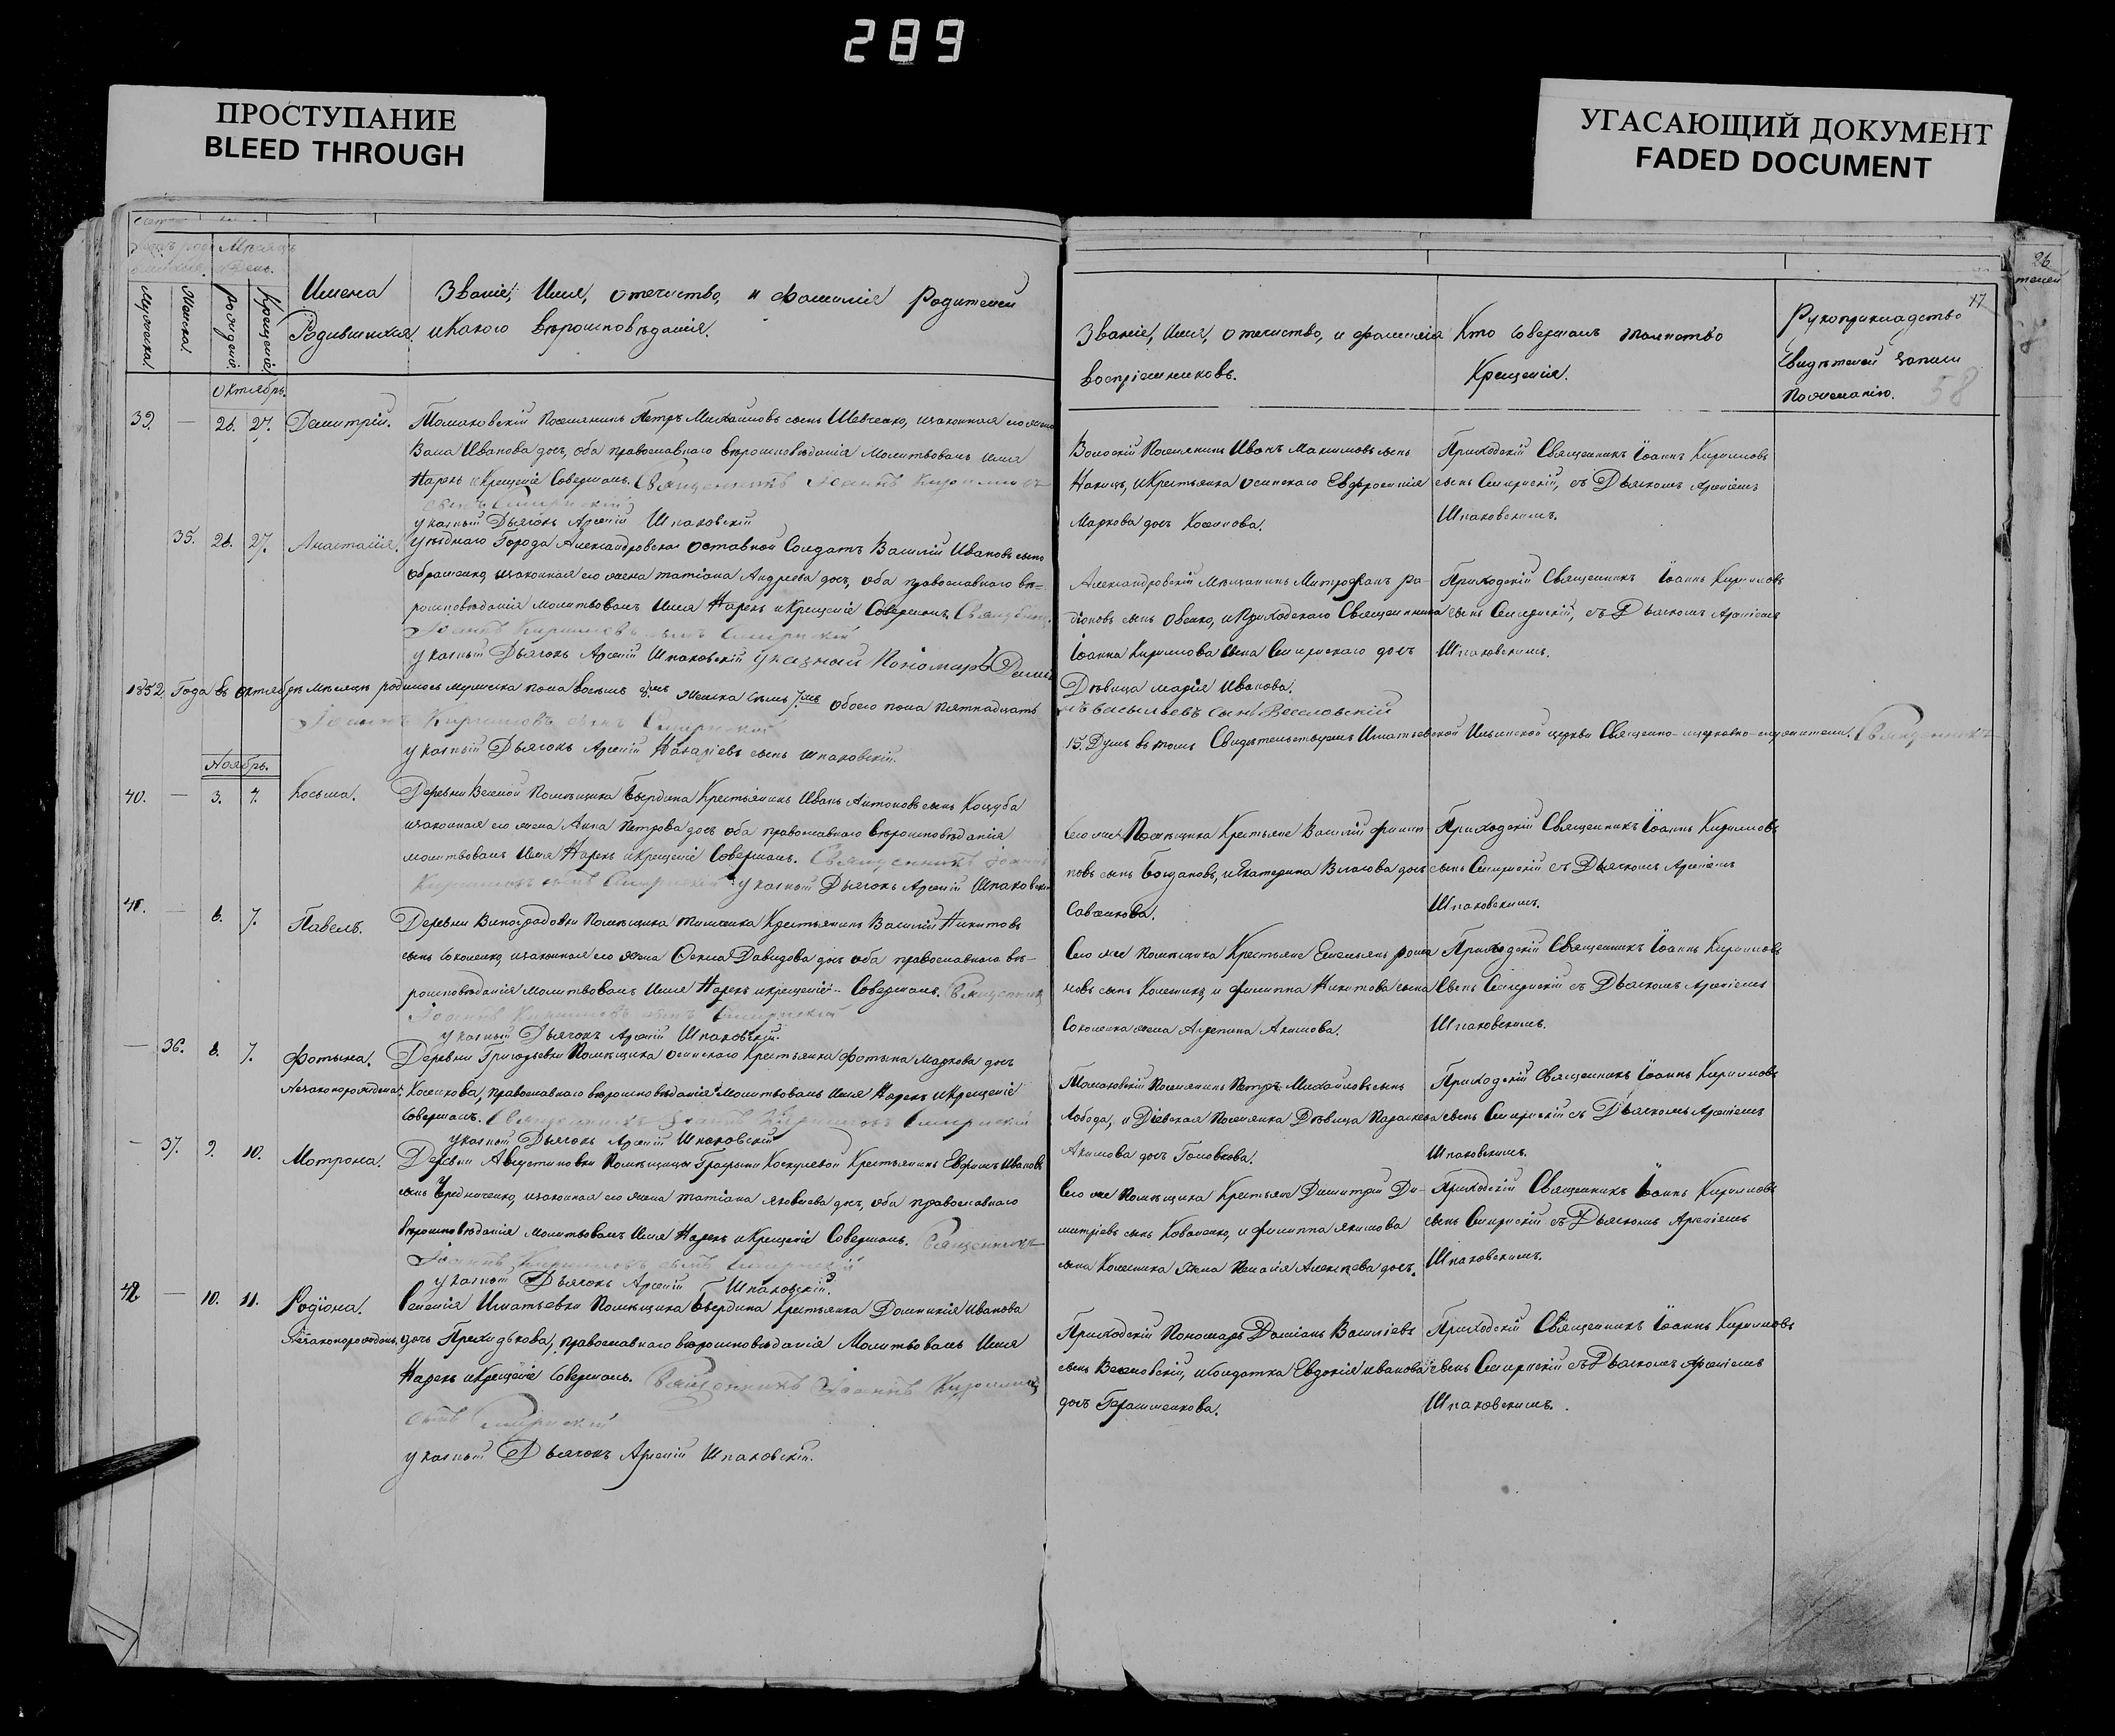 289
ПРОСТУПАНИЕ
BLEED THROUGH
УГАСАЮЩИЙ ДОКУМЕНТ
FADED DOCUMENT
26
17
58
Мѣсяцъ
и День.
Мужеска.
Женска.
рожденіе.
Крещеніе.
Имена
Родившихся.
Званіе, Имя, отечиство, и фамилія Родителей
и Какого вѣроисповѣданія.
Званіе, Имя, отечиство, и фамилія
воспріемниковъ.
Кто совершалъ таинство
Крещенія.
Рукоприкладство
Свидѣтелей записи
по желанію.
октябрь.
39. — 26. 27. Димитрій.
Томаковскій Поселянинъ Петръ Михайловъ сынъ Шевченко, и законная его жена
Васса Иванова дочь, оба православнаго вѣроисповѣданія Молитвовалъ имя
Нарекъ и Крещеніе Совершалъ. Священникъ Іоаннъ Кирилловъ
сынъ
указный Дьячокъ Арсеній Шпаковскій
Поселянинъ Иванъ Максимовъ сынъ
и Крестьянка Евфросинія
Маркова дочь
Приходскій Священникъ Іоаннъ Кирилловъ
сынъ съ Дьячкомъ Арсеніемъ
Шпаковскимъ.
35. 26. 27. Анастасія.
уѣзднаго Города Александровска отставной Солдатъ Василій Ивановъ сынъ
и законная его жена Татіана Андреева дочь, оба православнаго вѣ=
роисповѣданія молитвовалъ Имя Нарекъ и Крещеніе Совершалъ. Священникъ
Іоаннъ Кирилловъ сынъ
указный Дьячокъ Арсеній Шпаковскій указный Пономарь
Александровскій Мѣщанинъ Митрофанъ Ра-
діоновъ сынъ и Приходскаго Священника
Іоанна Кириллова сына дочь
Дѣвица Марія Иванова.
Васильевъ сынъ Веселовскій
Приходскій Священникъ Іоаннъ Кирилловъ
сынъ съ Дьячкомъ Арсеніемъ
Шпаковскимъ.
1852 Года въ октябрѣ Мѣсяцѣ родилось мужеска пола восемь 8мь женска семь 7мь обоего пола пятнадцать
15. Душъ въ томъ Свидѣтельствуемъ Игнатьевской Ильинской церкви Священно-церковно-служители. Священникъ
Іоаннъ Кирилловъ сынъ
указный Дьячокъ Арсеній Назаріевъ сынъ Шпаковскій.
Ноябрь.
40. — 3. 4. Косьма.
Деревни Веселой Помѣщика Крестьянинъ Иванъ Антоновъ сынъ Коцуба
и законная его жена Анна Петрова дочь оба православнаго Вѣроисповѣданія
молитвовалъ Имя Нарекъ и Крещеніе Совершалъ. Священникъ Іоаннъ
Кирилловъ сынъ указный Дьячокъ Арсеній Шпаковскій
Его же Помѣщика Крестьяне Василій Филип-
повъ сынъ Богдановъ, и Екатерина Власова дочь
Савенкова.
Приходскій Священникъ Іоаннъ Кирилловъ
сынъ съ Дьячкомъ Арсеніемъ
Шпаковскимъ.
41. — 6. 7. Павелъ.
Деревни Виноградовки Помѣщика Крестьянинъ Василій Никитовъ
сынъ Соколенко, и законная его жена Давидова дочь оба православнаго вѣ-
роисповѣданія Молитвовалъ Имя Нарекъ и крещеніе Совершалъ. Священникъ
Іоаннъ Кирилловъ сынъ
указный Дьячокъ Арсеній Шпаковскій.
Его же Помѣщика Крестьяне Емельянъ Рома
новъ сынъ и Филиппа Никитова сына
Соколенка жена Акимова.
Приходскій Священникъ Іоаннъ Кирилловъ
сынъ съ Дьячкомъ Арсеніемъ
Шпаковскимъ.
— 36. 6. 7. Фотина.
Незаконорожденная.
Деревни Григорьевки Помѣщика Крестьянка Фотина Маркова дочь
православнаго вѣроисповѣданія Молитвовалъ имя Нарекъ и Крещеніе
Совершалъ. Священникъ Іоаннъ Кирилловъ
указный Дьячокъ Арсеній Шпаковскій
Томаковскій Поселянинъ Петръ Михайловъ сынъ
Лобода, и Поселянка Дѣвица Параскева
Акимова дочь Головкова.
Приходскій Священникъ Іоаннъ Кирилловъ
сынъ съ Дьячкомъ Арсеніемъ
Шпаковскимъ.
— 37. 9. 10. Мотрона.
Деревни Августиновки Помѣщицы Графини Крестьянинъ Евфимъ Ивановъ
сынъ Чередниченко, и законная его жена Татіана Яковлева дочь, оба православнаго
вѣроисповѣданія молитвовалъ Имя Нарекъ и Крещеніе Совершалъ. Священникъ
Іоаннъ Кирилловъ сынъ
указный Дьячокъ Арсеній Шпаковскій.
Его же Помѣщика Крестьяне Димитрій Ди-
митріевъ сынъ Коваленко, и Филиппа Якимова
сына жена Пелагія Алексѣева дочь.
Приходскій Священникъ Іоаннъ Кирилловъ
сынъ съ Дьячкомъ Арсеніемъ
Шпаковскимъ.
42. — 10. 11. Родіона.
Незаконорожденъ.
Селенія Игнатьевки Помѣщика Крестьянка Домникія Иванова
дочь православнаго вѣроисповѣданія Молитвовалъ Имя
Нарекъ и Крещеніе Совершалъ. Священникъ Іоаннъ Кирилловъ
сынъ
указный Дьячокъ Арсеній Шпаковскій.
Приходскій Пономарь Даміанъ Василіевъ
сынъ Веселовскій, и Солдатка Евдокія Иванова
дочь Герасименкова.
Приходскій Священникъ Іоаннъ Кирилловъ
сынъ съ Дьячкомъ Арсеніемъ
Шпаковскимъ.